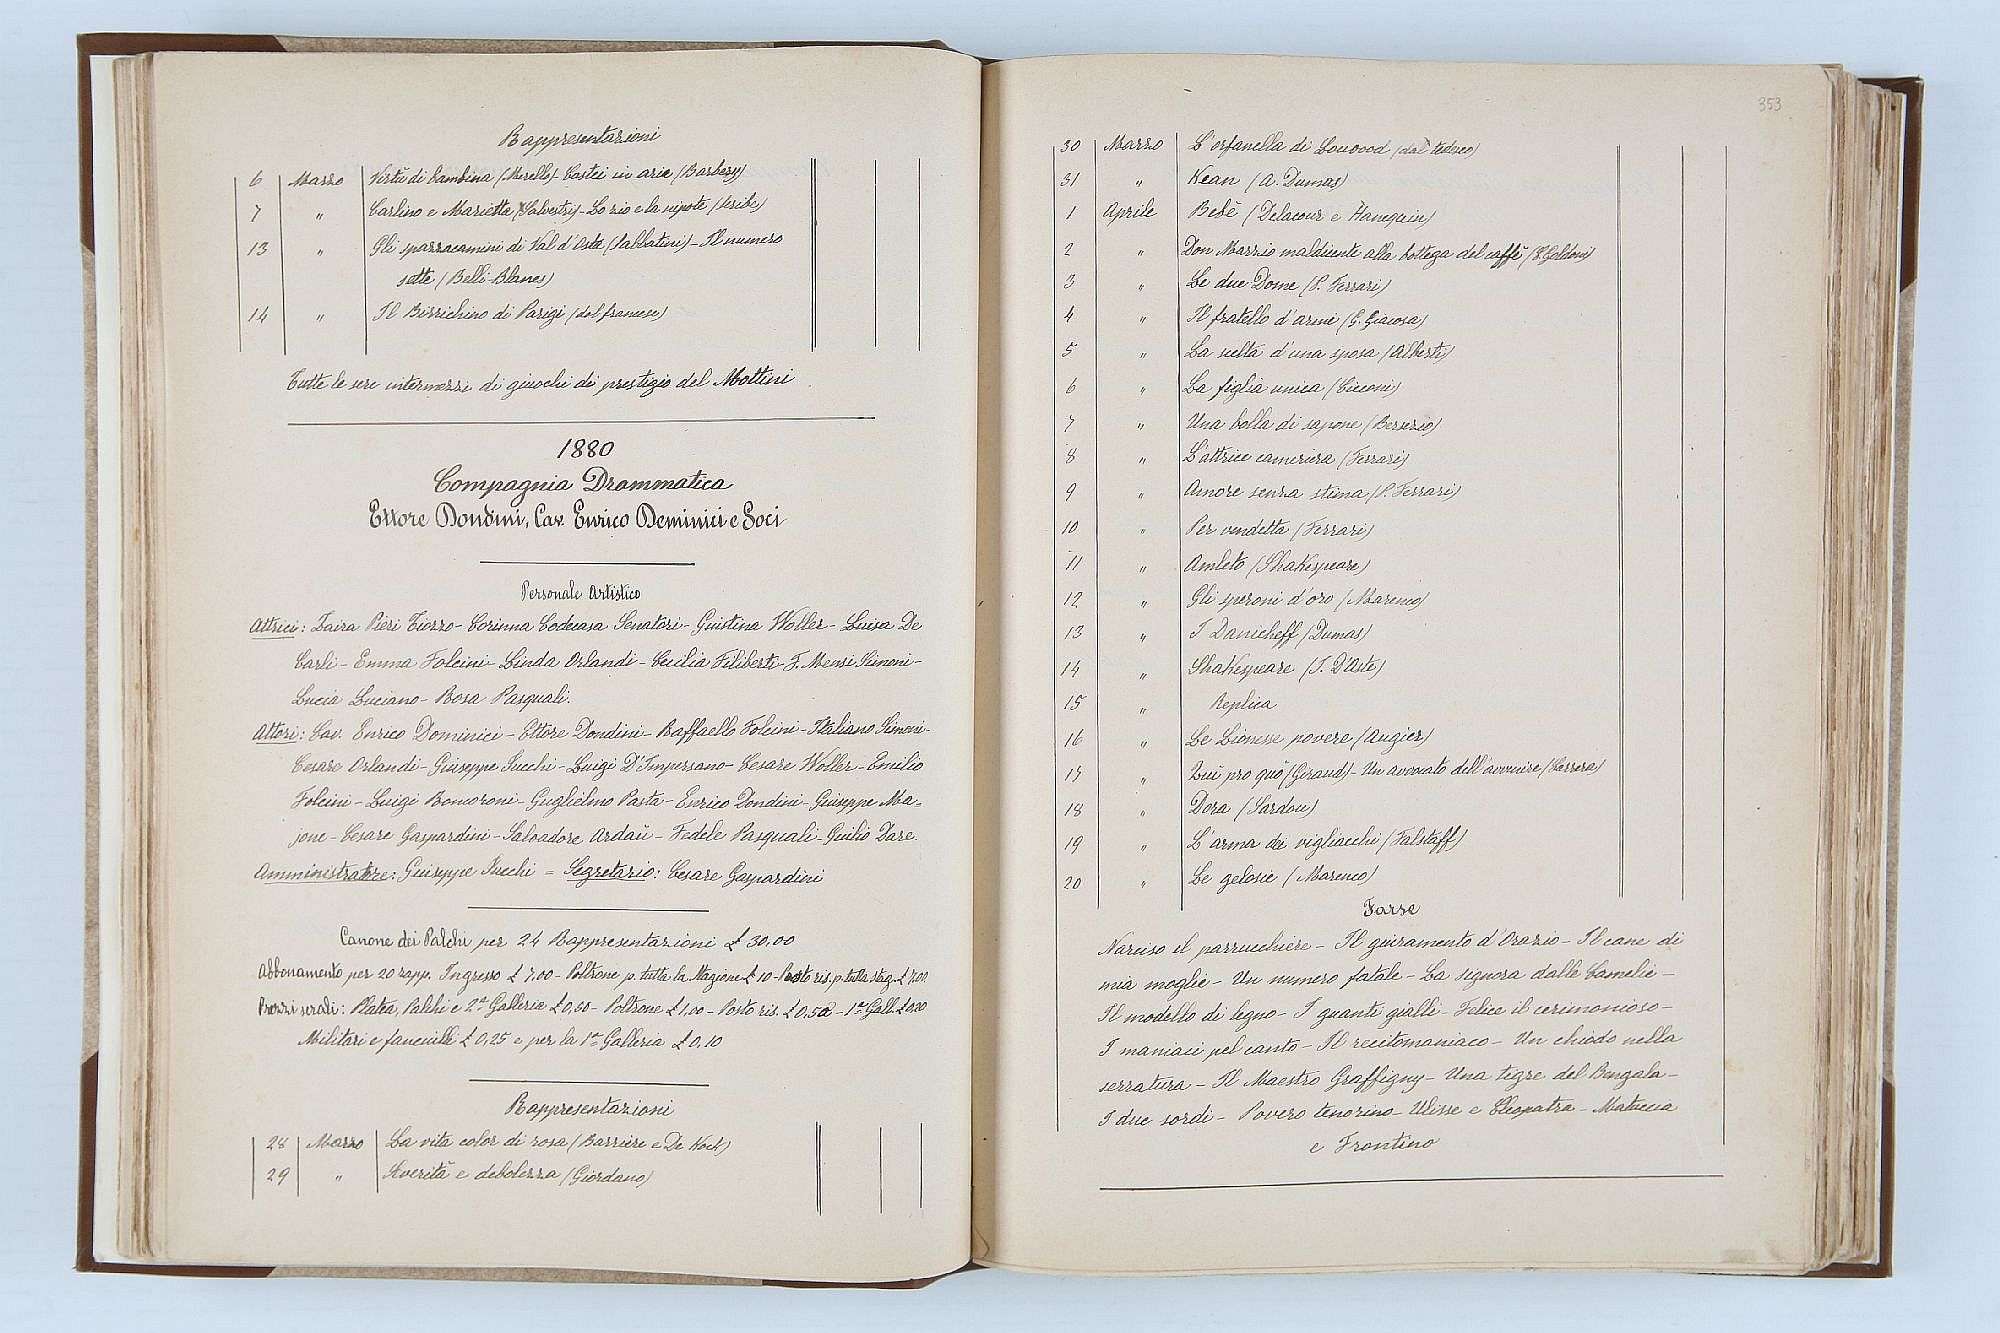 Rappresentazioni
6 Marzo Virtù di bambina (Morello) - Costei in aria (Barbery)
7 " Carlino e Marietta (Salvestri) - Lo zio e la nipote (Scribe)
13 " Gli spazzacamini di Val d'Osta (Sabbatini) - Il numero
sette (Belli-Blanes)
14 " Il Birrichino di Parigi (dal francese)
Tutte le sere intermezzi di giuochi di prestigio del Mottini
1880
Compagnia Drammatica
Ettore Dondini, Cav. Enrico Deminici e Soci
Personale Artistico
Attrici: Zaira Pieri Tiozzo - Corinna Codecasa Senatori - Giustina Woller - Luisa De
Carli - Emma Folcini - Linda Orlandi - Cecilia Filiberti - F. Mensi Simoni -
Lucia Luciano - Rosa Pasquali.
Attori: Cav. Enrico Dominici - Ettore Dondini - Raffaello Folcini - Italiano Simoni -
Cesare Orlandi - Giuseppe Zucchi - Luigi D'Impersano - Cesare Woller - Emilio
Folcini - Luigi Bomoroni - Guglielmo Pasta - Enrico Dondini - Giuseppe Ma=
jone - Cesare Gaspardini - Salvadore Ardaü - Fedele Pasquali - Giulio Dare.
Amministratore: Giuseppe Zucchi = Segretario: Cesare Gaspardini
Canone dei Palchi per 24 Rappresentazioni £ 30.00
Abbonamento per 20 rapp. Ingresso £ 7.00 - Poltrone p. tutta la Stagione £ 10 - Posto ris. p. tutta stag. £ 7.00.
Prezzi serali: Platea, Palchi e 2ª Galleria £ 0,60 - Poltrone £ 1,00 - Posto ris. £ 0.50 - 1ª Gall. £ 0.20
Militari e fanciulli £ 0,25 e per la 1ª Galleria £ 0,10
Rappresentazioni
28 Marzo La vita color di rosa (Barrière e De Kock)
29 " Severità e debolezza (Giordano)
353
30 Marzo L'orfanella di Lowood (dal tedesco)
31 " Kean (A. Dumas)
1 Aprile Bebè (Delacour e Hanequin)
2 " Don Marzio maldicente alla bottega del caffè (C. Goldoni)
3 " Le due Dome (P. Ferrari)
4 " Il fratello d'armi (G. Giacosa)
5 " La scelta d'una sposa (Alberti)
6 " La figlia unica (Cicconi)
7 " Una bolla di sapone (Bersezio)
8 " L'attrice cameriera (Ferrari)
9 " Amore senza stima (P. Ferrari)
10 " Per vendetta (Ferrari)
11 " Amleto (Shakespeare)
12 " Gli speroni d'oro (Marenco)
13 " I Danicheff (Dumas)
14 " Shakespeare (I. D'Aste)
15 " Replica
16 " Le Lionesse povere (Augier)
17 " Quì pro quò (Giraud) - Un avvocato dell'avvenire (Carrera)
18 " Dora (Sardou)
19 " L'arma dei vigliacchi (Falstaff)
20 " Le gelosie (Marenco)
Farse
Narciso il parrucchiere - Il giuramento d'Orazio - Il cane di
mia moglie - Un numero fatale - La signora dalle Camelie -
Il modello di legno - I guanti gialli - Felice il cerimonioso -
I maniaci pel canto - Il recitomaniaco - Un chiodo nella
serratura - Il Maestro Graffigny - Una tigre del Bengala -
I due sordi - Povero tenorino - Ulisse e Cleopatra - Matacia
e Frontino